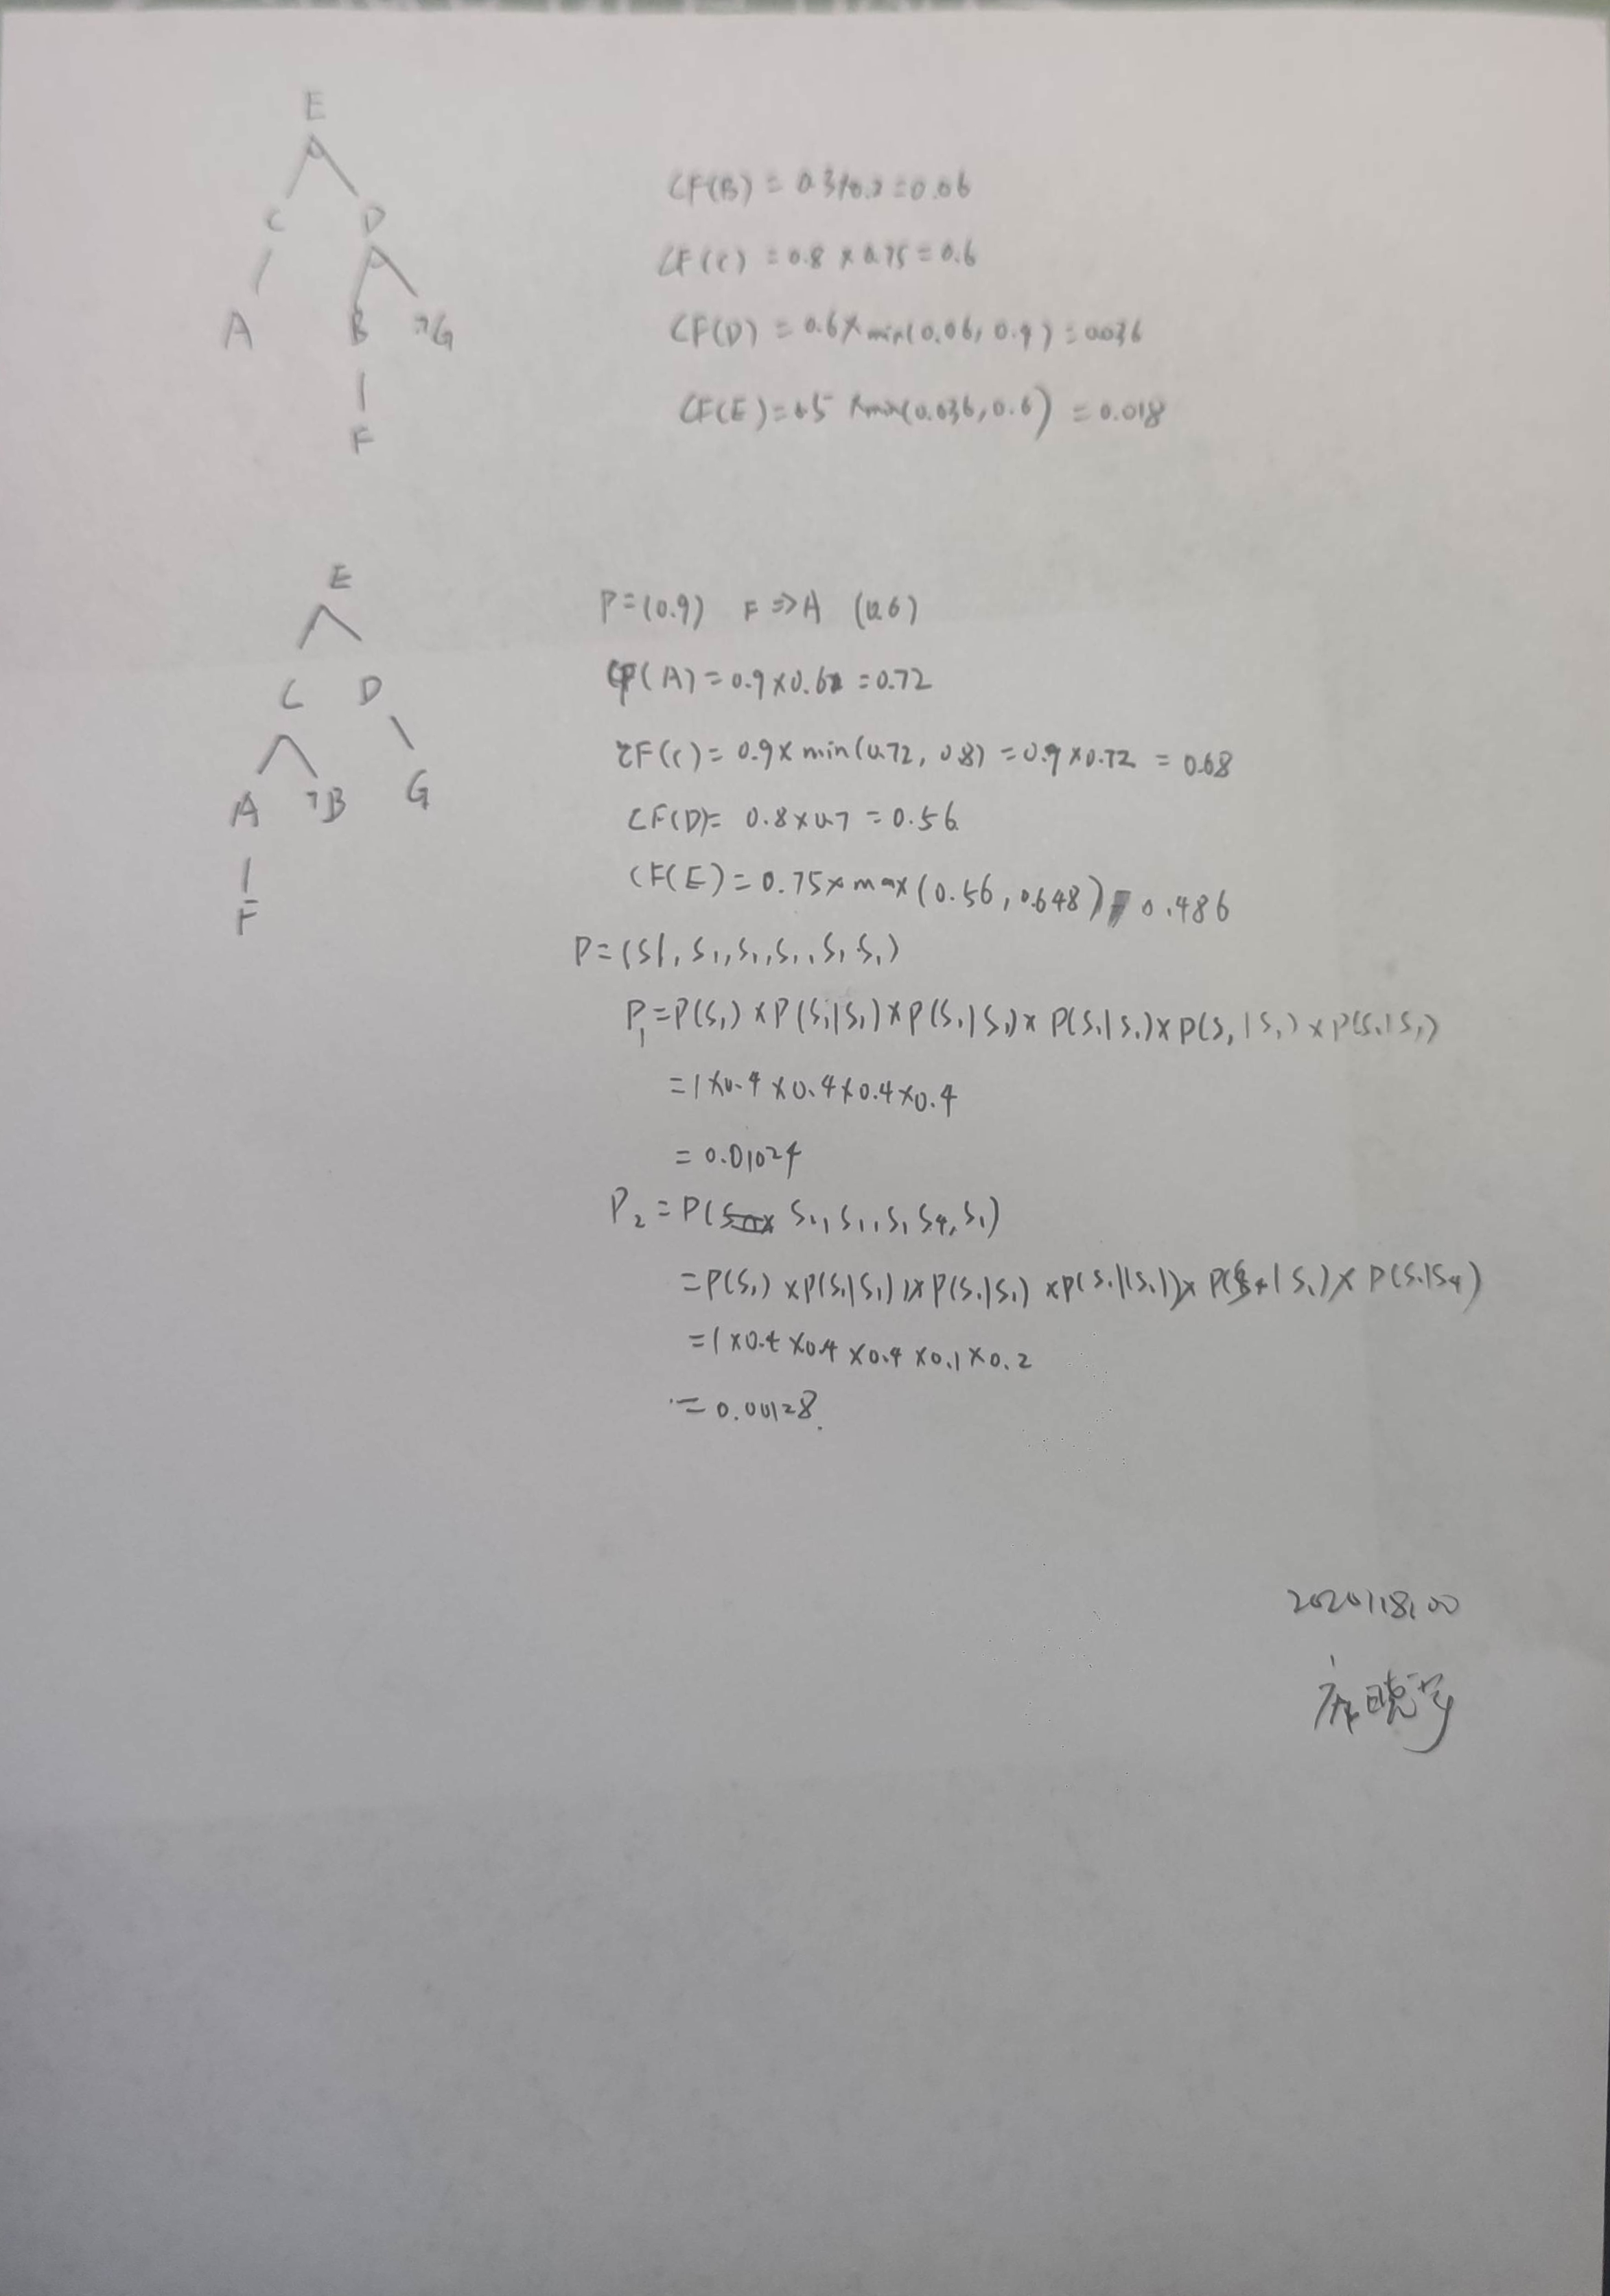 E
C D
A B ¬G
F
CF(B) = 0.3×0.2=0.06
CF(C) = 0.8 × 0.75 = 0.6
CF(D) = 0.6×min(0.06, 0.9) = 0.036
CF(E)=0.5 ×min(0.036, 0.6) = 0.018
E
C D
A ¬B G
F
P=(0.9) F⇒A (0.6)
CF(A)=0.9×0.6 =0.72
CF(C)= 0.9× min(0.72, 0.8) =0.9×0.72 = 0.68
CF(D)= 0.8×0.7 =0.56
CF(E)=0.75×max(0.56, 0.648)=0.486
P=(S1, S1, S1, S1, S1 S1)
P1=P(S1)×P(S1|S1)×P(S1|S1)×P(S1|S1)×P(S1|S1)×P(S1|S1)
=1×0.4×0.4×0.4×0.4
= 0.01024
P2=P( S1, S1, S1 S4, S1)
=P(S1)×P(S1|S1)×P(S1|S1)×P(S1|S1)×P(S4|S1)×P(S1|S4)
=1×0.4×0.4×0.4×0.1×0.2
=0.00128